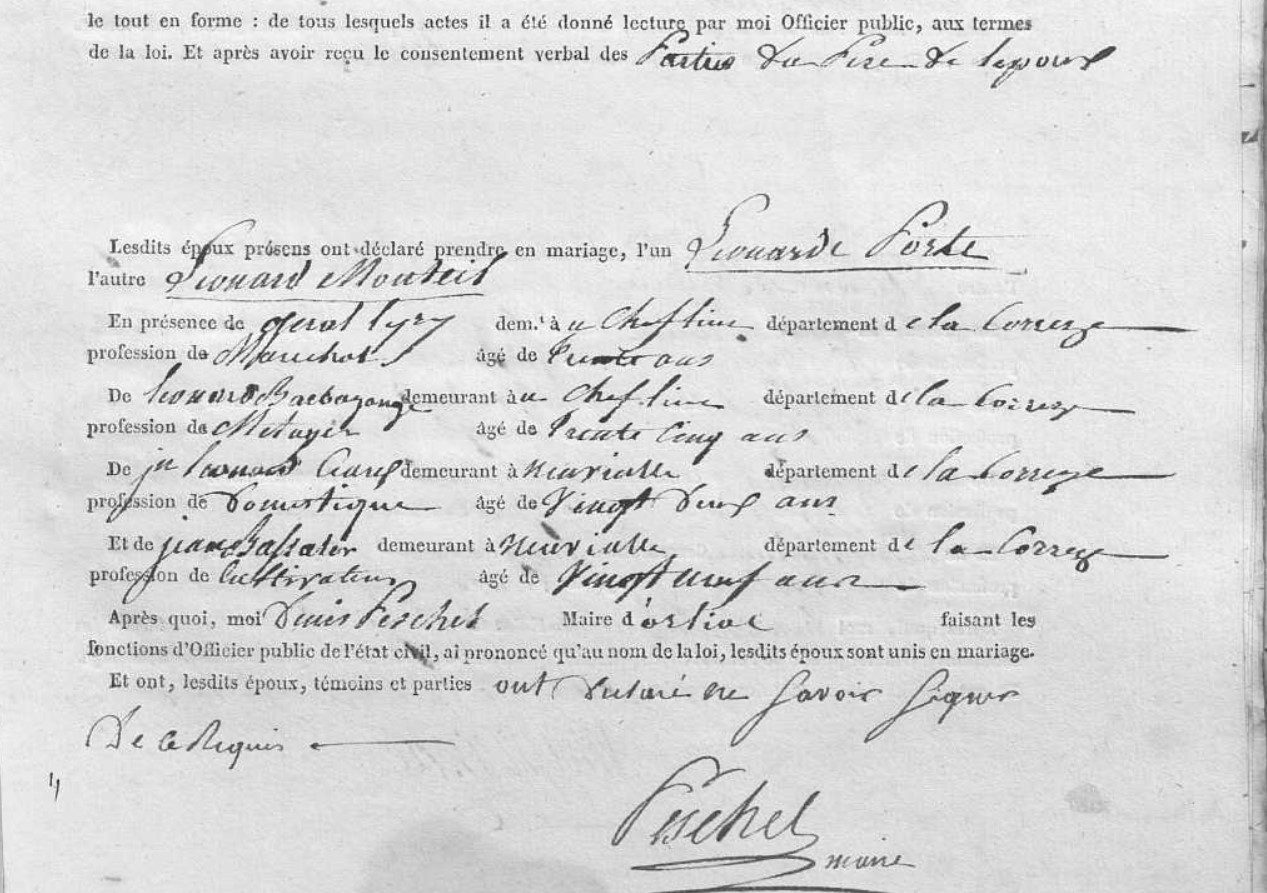 le tout en forme : de tous lesquels actes il a été donné lecture par moi Officier public, aux termes
de la loi. Et après avoir reçu le consentement verbal des Parties du Pere de lepoux
Lesdits époux présens ont déclaré prendre en mariage, l'un Leonarde Porte
l'autre Leonard Monteil
En présence de geral dem.t à u Chef lieu département de la Correze
profession de âgé de trente ans
De leonard Barbazange demeurant à u Chef lieu département de la Correze
profession de Metayer âgé de trente Cinq ans
De jn leonard demeurant à département de la Correze
profession de Domestique âgé de Vingt Deux ans
Et de jean demeurant à département de la Correze
profession de Cultivateur âgé de Vingt neuf ans
Après quoi, moi Denis Peschel Maire d'orliac faisant les
fonctions d'Officier public de l'état civil, ai prononcé qu'au nom de la loi, lesdits époux sont unis en mariage.
Et ont, lesdits époux, témoins et parties ont Declaré ne Savoir Signer
De ce Requis
Peschel
maire